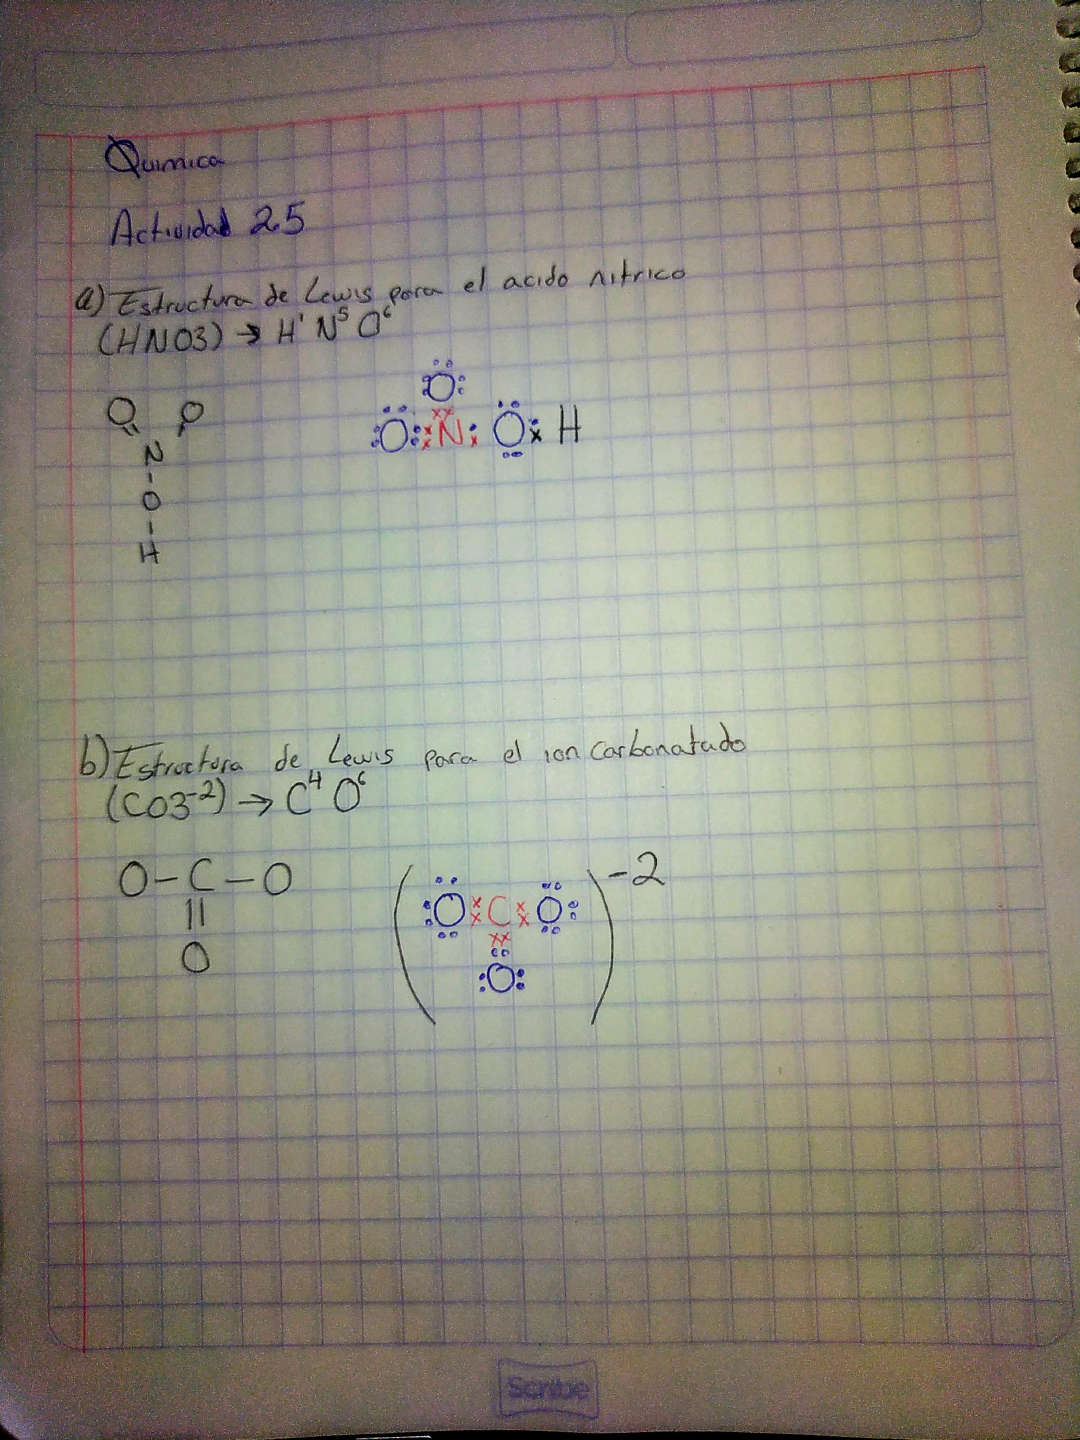 Quimica
Actividad 2.5
a) Estructura de Lewis para el acido nitrico
(HNO3) → H¹ N⁵ O⁶
O O
N
O
H
O
O N O H
b) Estructura de Lewis para el ion carbonatado
(CO3⁻²) → C⁴ O⁶
O-C-O
||
O
(O C O)⁻²
O
Scribe